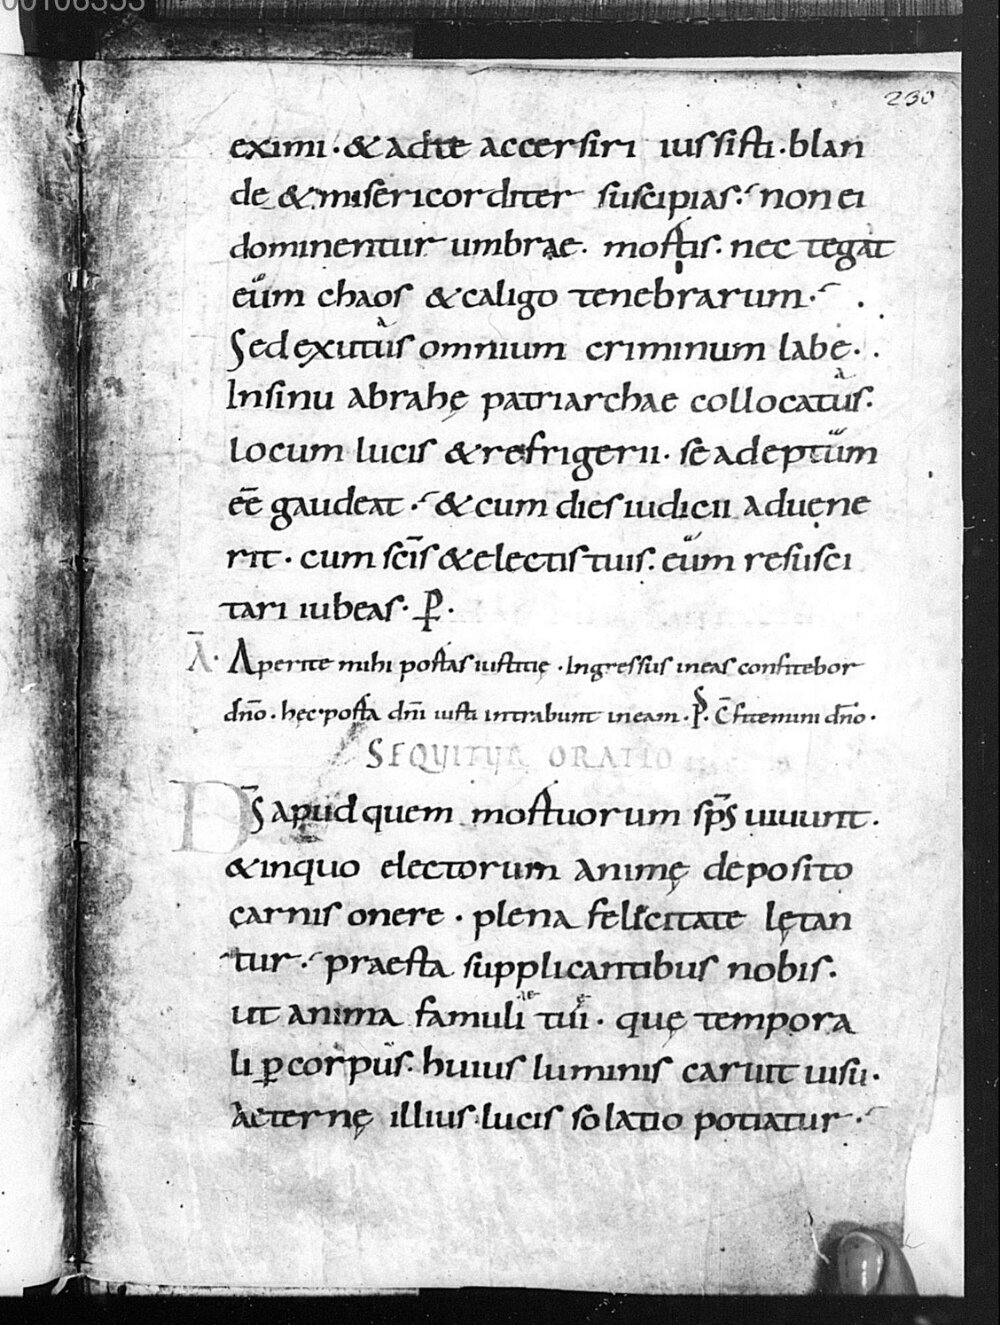 00106353
230
eximi · & ad te accersiri iussisti · blan
de & misericorditer suscipias · non ei
dominentur umbrae · mortis · nec tegat
eum chaos & caligo tenebrarum ·
Sed exutus omnium criminum labe ·
In sinu abrahę patriarchae collocatus ·
locum lucis & refrigerii · se adeptum
eē gaudeat · & cum dies iudicii aduene
rit · cum sc̄is & electis tuis · eum resusci
tari iubeas · P ·
Ā · Aperite mihi portas iustitię · Ingressus in eas confitebor
dn̄o · hęc porta dn̄i iusti intrabunt in eam · Ps̄ · C̄fitemini dn̄o ·
SEQUITUR ORATIO
DS̄ apud quem mortuorum sps̄ uiuunt ·
& in quo electorum animę deposito
carnis onere · plena felicitate lętan
tur · praesta supplicantibus nobis ·
ut anima famuli tui · quę tempora
li p corpus · huius luminis caruit uisu ·
Aeternę illius lucis solatio potiatur ·